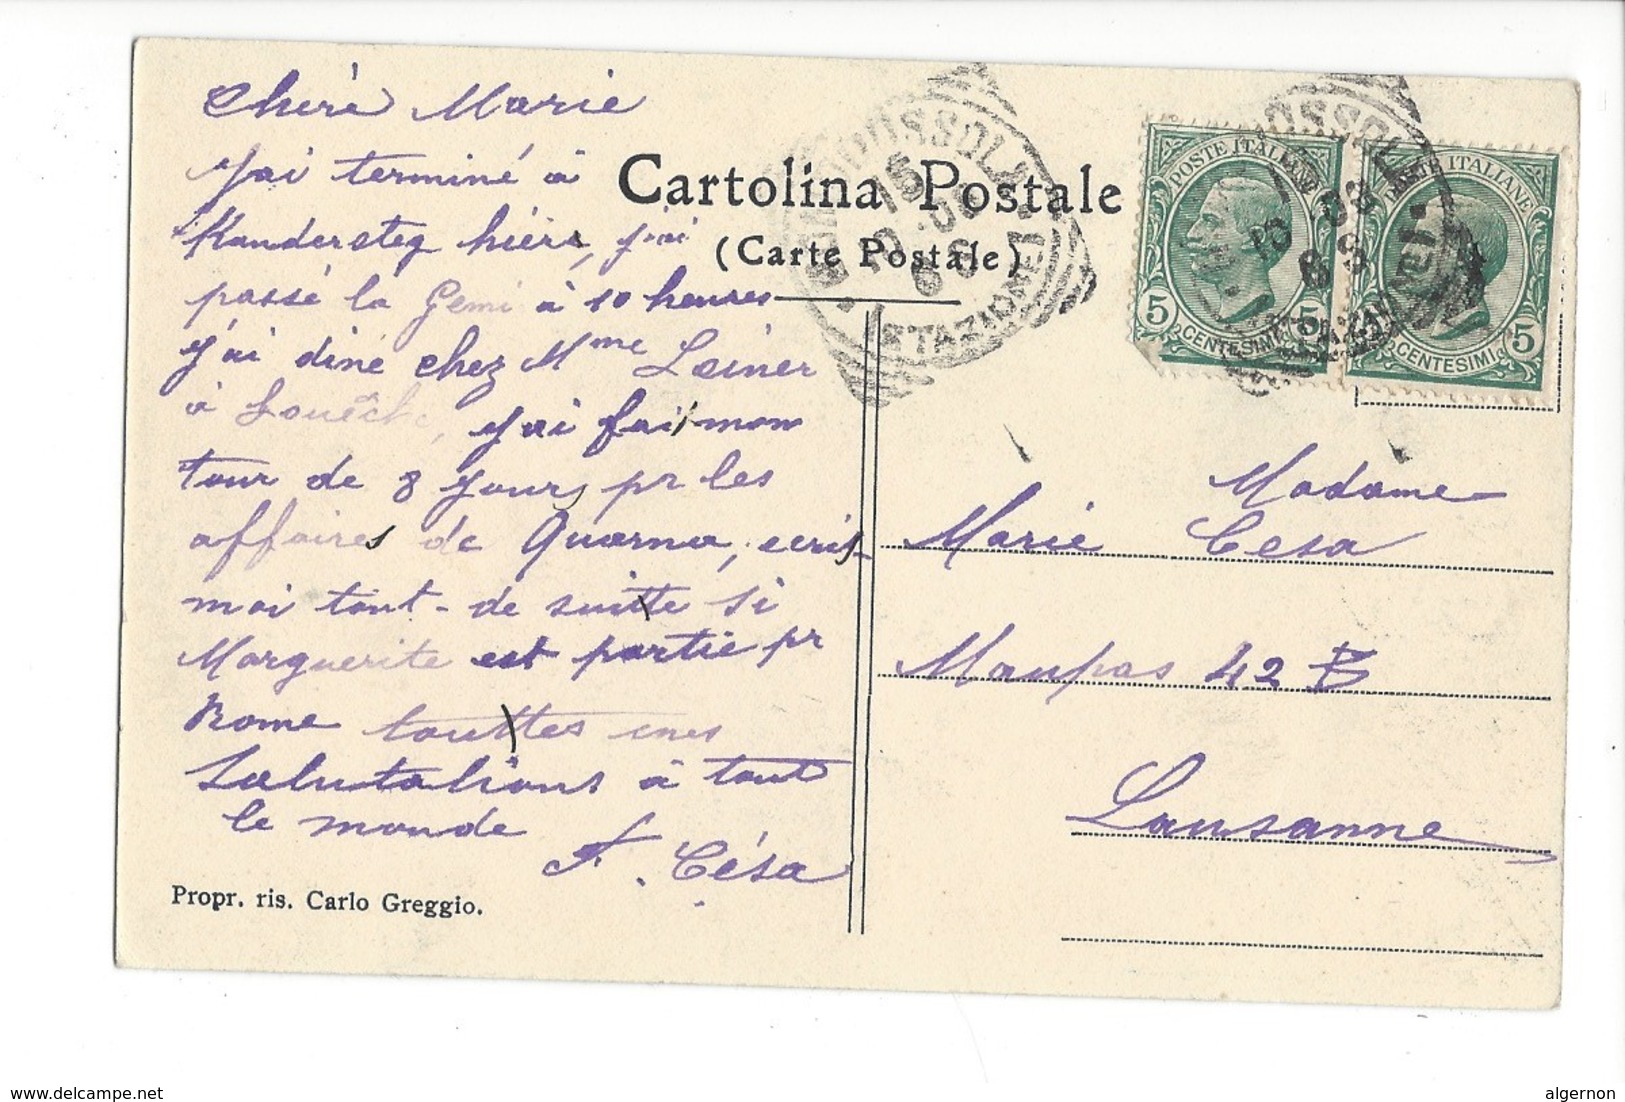 Cheré Marie
J'ai terminé à
Kandersteg hiére, j'ai
passé la Gemi à 10 heures
j'ai diné chez Mme Leiner
à Louêche, j'ai fait mon
tour de 8 jours pr les
affaires de Quarna, ecris-
moi tout-de suitte si
Marguerite est partie pr
Rome touttes mes
Salutations à tout
le monde
F. Césa
Propr. ris. Carlo Greggio.
Cartolina Postale
(Carte Postale)
(STAZIONE)
POSTE ITALIANE
5 CENTESIMI 5
POSTE ITALIANE
CENTESIMI 5
Madame
Marie Cesa
Maupas 42 B
Lausanne
www.delcampe.net
algernon